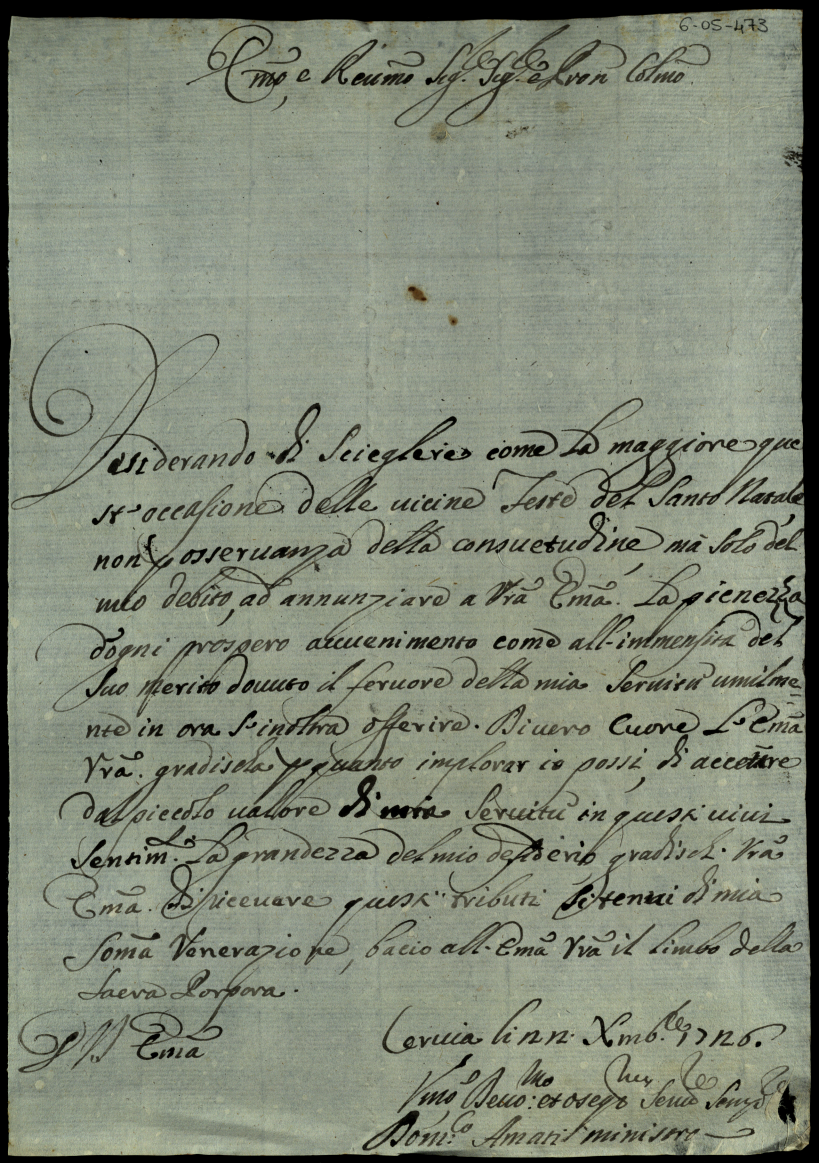 6-05-473
Emō, e Reumō Sig.re Sig.re e Pron Colmō
Desiderando di Scieglere come La maggiore que
st'occasione delle uicine Feste del Santo Natale
non p osseruanza della consuetudine, mà solo del
mio debito, ad annunziare a Vrā Emā. La pienezza
d'ogni prospero auuenimento come all'immensità del
Suo merito douuto il feruore della mia Seruitù umilme
nte in ora S'inoltra offerire. Di uero Cuore L'Emā
Vrā. gradisca p quanto implorar io possi, di accettare
dal piccolo ualore di mia Seruitù in questi uiui
Sentim.ti La grandezza del mio desiderio, gradisca Vrā
Emā. di riceuere questi tributi Si tenui di mia
Somā Venerazione, bacio all'Emā Vrā il Limbo della
Sacra Porpora.
D V Emā
Ceruia li 22. Xmb.re 1726.
Vmō Deuo.mo et osseqo Seruo
Dom.co Amati ministro